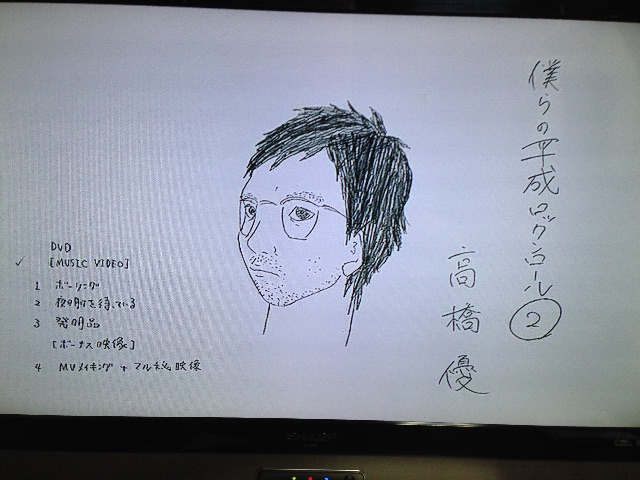 僕らの平成ロックンロール②
高橋優
DVD
✓ [MUSIC VIDEO]
1 ボーリング
2 夜明けを待っている
3 発明品
[ボーナス映像]
4 MVメイキング + マル秘映像
SHARP